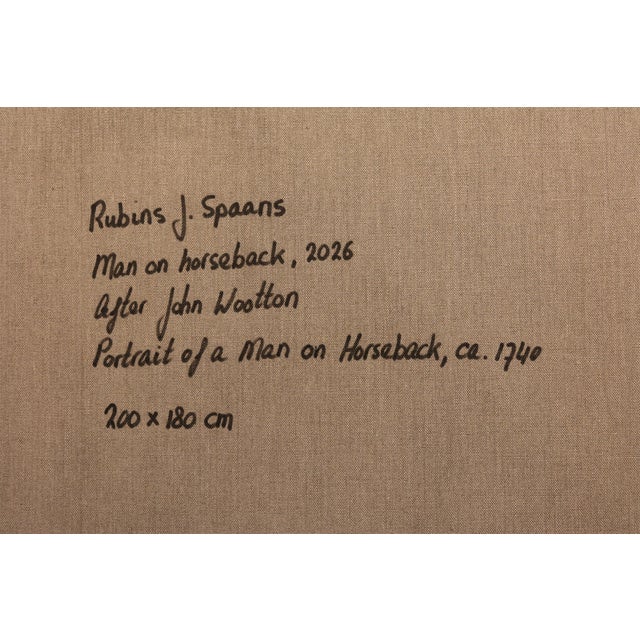 Rubins J. Spaans
Man on horseback, 2026
After John Wootton
Portrait of a Man on Horseback, ca. 1740
200 x 180 cm